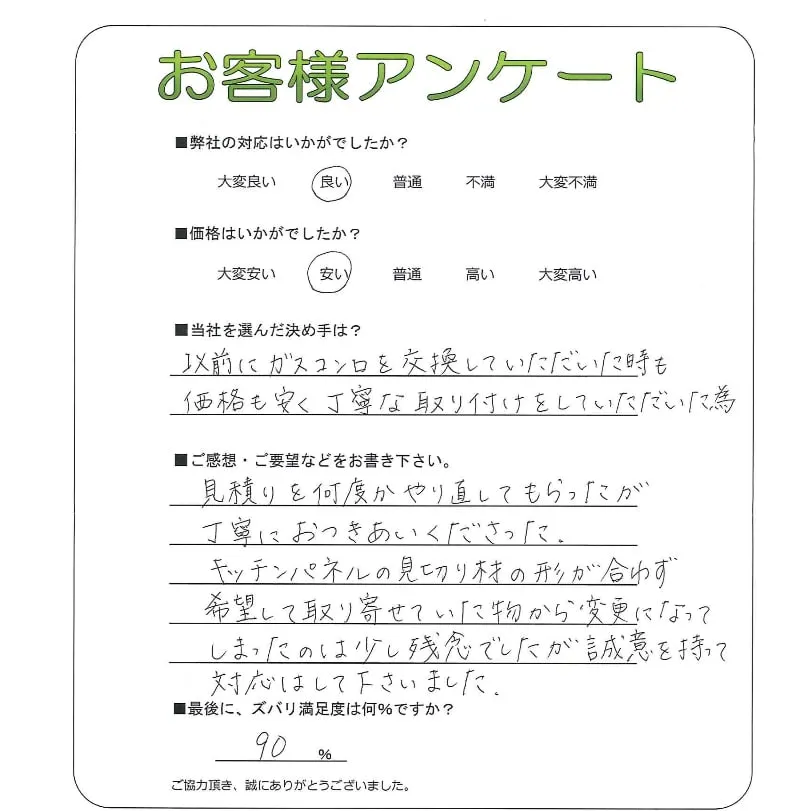 お客様アンケート
■弊社の対応はいかがでしたか？
大変良い 良い 普通 不満 大変不満
■価格はいかがでしたか？
大変安い 安い 普通 高い 大変高い
■当社を選んだ決め手は？
以前にガスコンロを交換していただいた時も
価格も安く丁寧な取り付けをしていただいた為
■ご感想・ご要望などをお書き下さい。
見積りを何度かやり直してもらったが
丁寧におつきあいくださった。
キッチンパネルの見切り材の形が合わず
希望して取り寄せていた物から変更になって
しまったのは少し残念でしたが誠意を持って
対応はして下さいました。
■最後に、ズバリ満足度は何%ですか？
90 %
ご協力頂き、誠にありがとうございました。